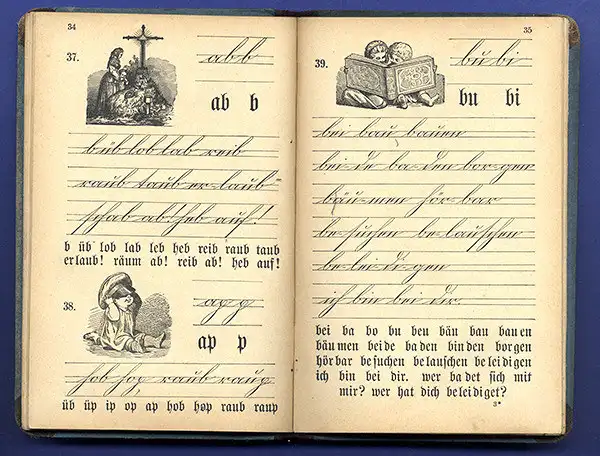 34
37.
ab b
ab b
b üb lob lab reib
raub taub er-laub-
schab ab! heb auf!
b üb lob lab leb heb reib raub taub
erlaub! räum ab! reib ab! heb auf!
38.
ap p
ap p
hob hop raub raup
üb üp ip op ap hob hop raub raup
35
39.
bu bi
bu bi
bei bau bauen
bei-de ba-den bor-gen
bäu-men hör-bar
be-suchen be-lauschen
be-lei-di-gen
ich bin bei dir.
bei ba bo bu ben bäu bau bauen
bäumen beide baden binden borgen
hörbar besuchen belauschen beleidigen
ich bin bei dir. wer badet sich mit
mir? wer hat dich beleidiget?
3*